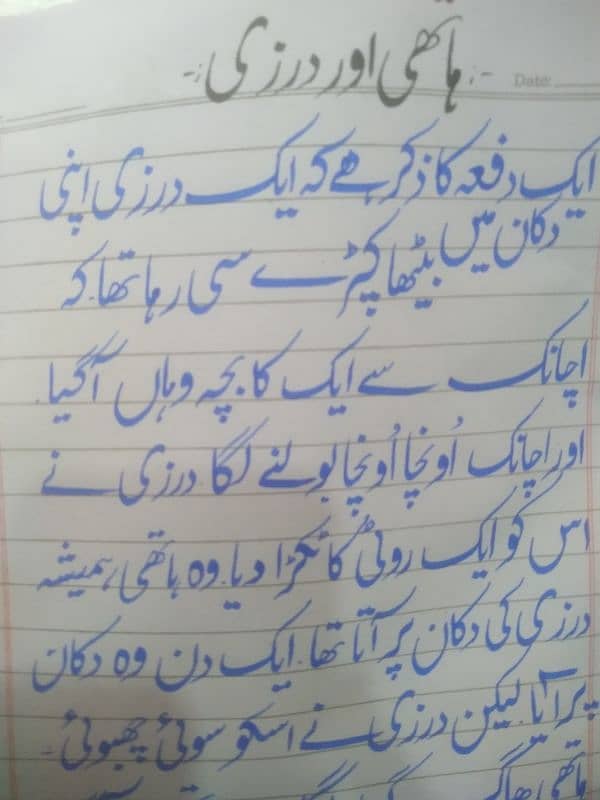 -: ہاتھی اور درزی :-
Date:
ایک دفعہ کا ذکر ھے کہ ایک درزی اپنی
دکان میں بیٹھا کپڑے سی رہا تھا۔ کہ
اچانک سے ایک کا بچہ وہاں آگیا۔
اور اچانک اُونچا اُونچا بولنے لگا درزی نے
اس کو ایک روٹی کا ٹکڑا دیا۔ وہ ہاتھی ہمیشہ
درزی کی دکان پر آتا تھا۔ ایک دن وہ دکان
پر آیا لیکن درزی نے اسکو سوئی چبھوئی۔
ہاتھی بھاگ